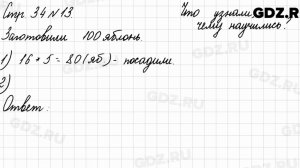 Стр. 34 N 13.
Что узнали,
чему научились?
GDZ.RU
Заготовили 100 яблонь.
1) 16 * 5 = 80 (яб) - посадили.
2)
Ответ: